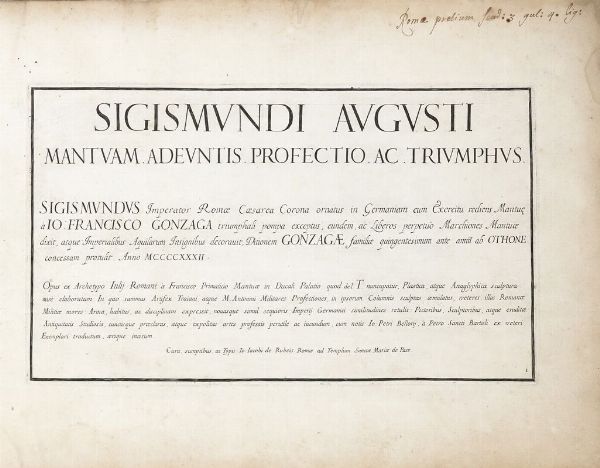 Romæ pretium scud: 3 gul: 4. lig:
SIGISMVNDI AVGVSTI
MANTVAM. ADEVNTIS. PROFECTIO. AC. TRIVMPHVS
SIGISMVNDVS Imperator Romæ Cæsarea Corona ornatus in Germaniam cum Exercitu rediens Mantuæ
à IO: FRANCISCO GONZAGA triumphali pompa exceptus, eundem, ac Liberos perpetuò Marchiones Mantuæ
dixit, atque Imperialibus Aquilarum Insignibus decorauit, Ditionem GONZAGÆ familiæ quingentesimum ante annũ ab OTHONE
concessam protulit Anno MCCCCXXXII.
Opus ex Archetypo Iulij Romani à Francisco Primaticio Mantuæ in Ducali Palatio quod del T nuncupatur, Plastica, atque Anaglyphica sculptura
mirè elaboratum In quo summus Artifex Traiani, atque M. Antonini Militares Profectiones in ipsorum Columnis sculptas æmulatus, veteres illos Romanæ
Militiæ mores Arma, habitus, ac disciplinam expressit, nouasque simul sequioris Imperij Germanici similitudines retulit: Pictoribus, Sculptoribus, atque eruditæ
Antiquitatis Studiosis, cunctisque præclaras, atque expolitas artes professis perutile ac iucundum, cum notis Io: Petri Bellorij, à Petro Sancti Bartoli ex veteri
Exemplari traductum, ærique incisum
Cura, sumptibus, ac Typis Io: Iacobi de Rubeis Romæ ad Templum Sanctæ Mariæ de Pace
1